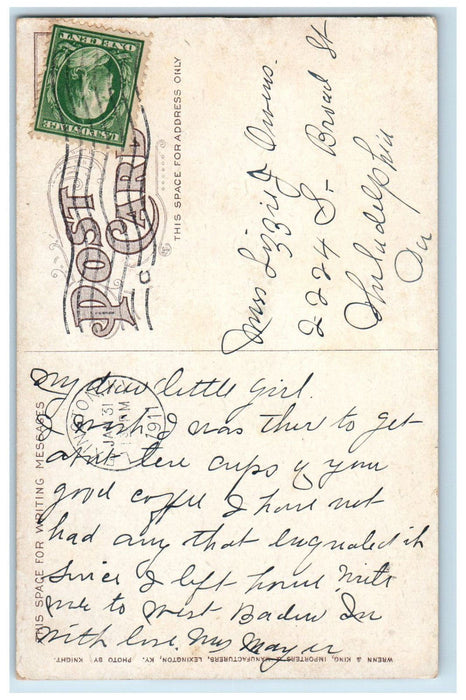 U.S. POSTAGE
ONE CENT
POST CARD
THIS SPACE FOR ADDRESS ONLY
Miss Lizzie J Owens.
2224 S- Broad St
Philadelphia
Pa
THIS SPACE FOR WRITING MESSAGES
JAN 31
1911
My dear little Girl.
I wish I was ther to get
about tere cups of your
good coffee I have not
had any that enqualed it
since I left home. write
me to West Baden In
With love. Mrs Mayer
WRENN & KING, IMPORTERS & MANUFACTURERS, LEXINGTON, KY. PHOTO BY KNIGHT.